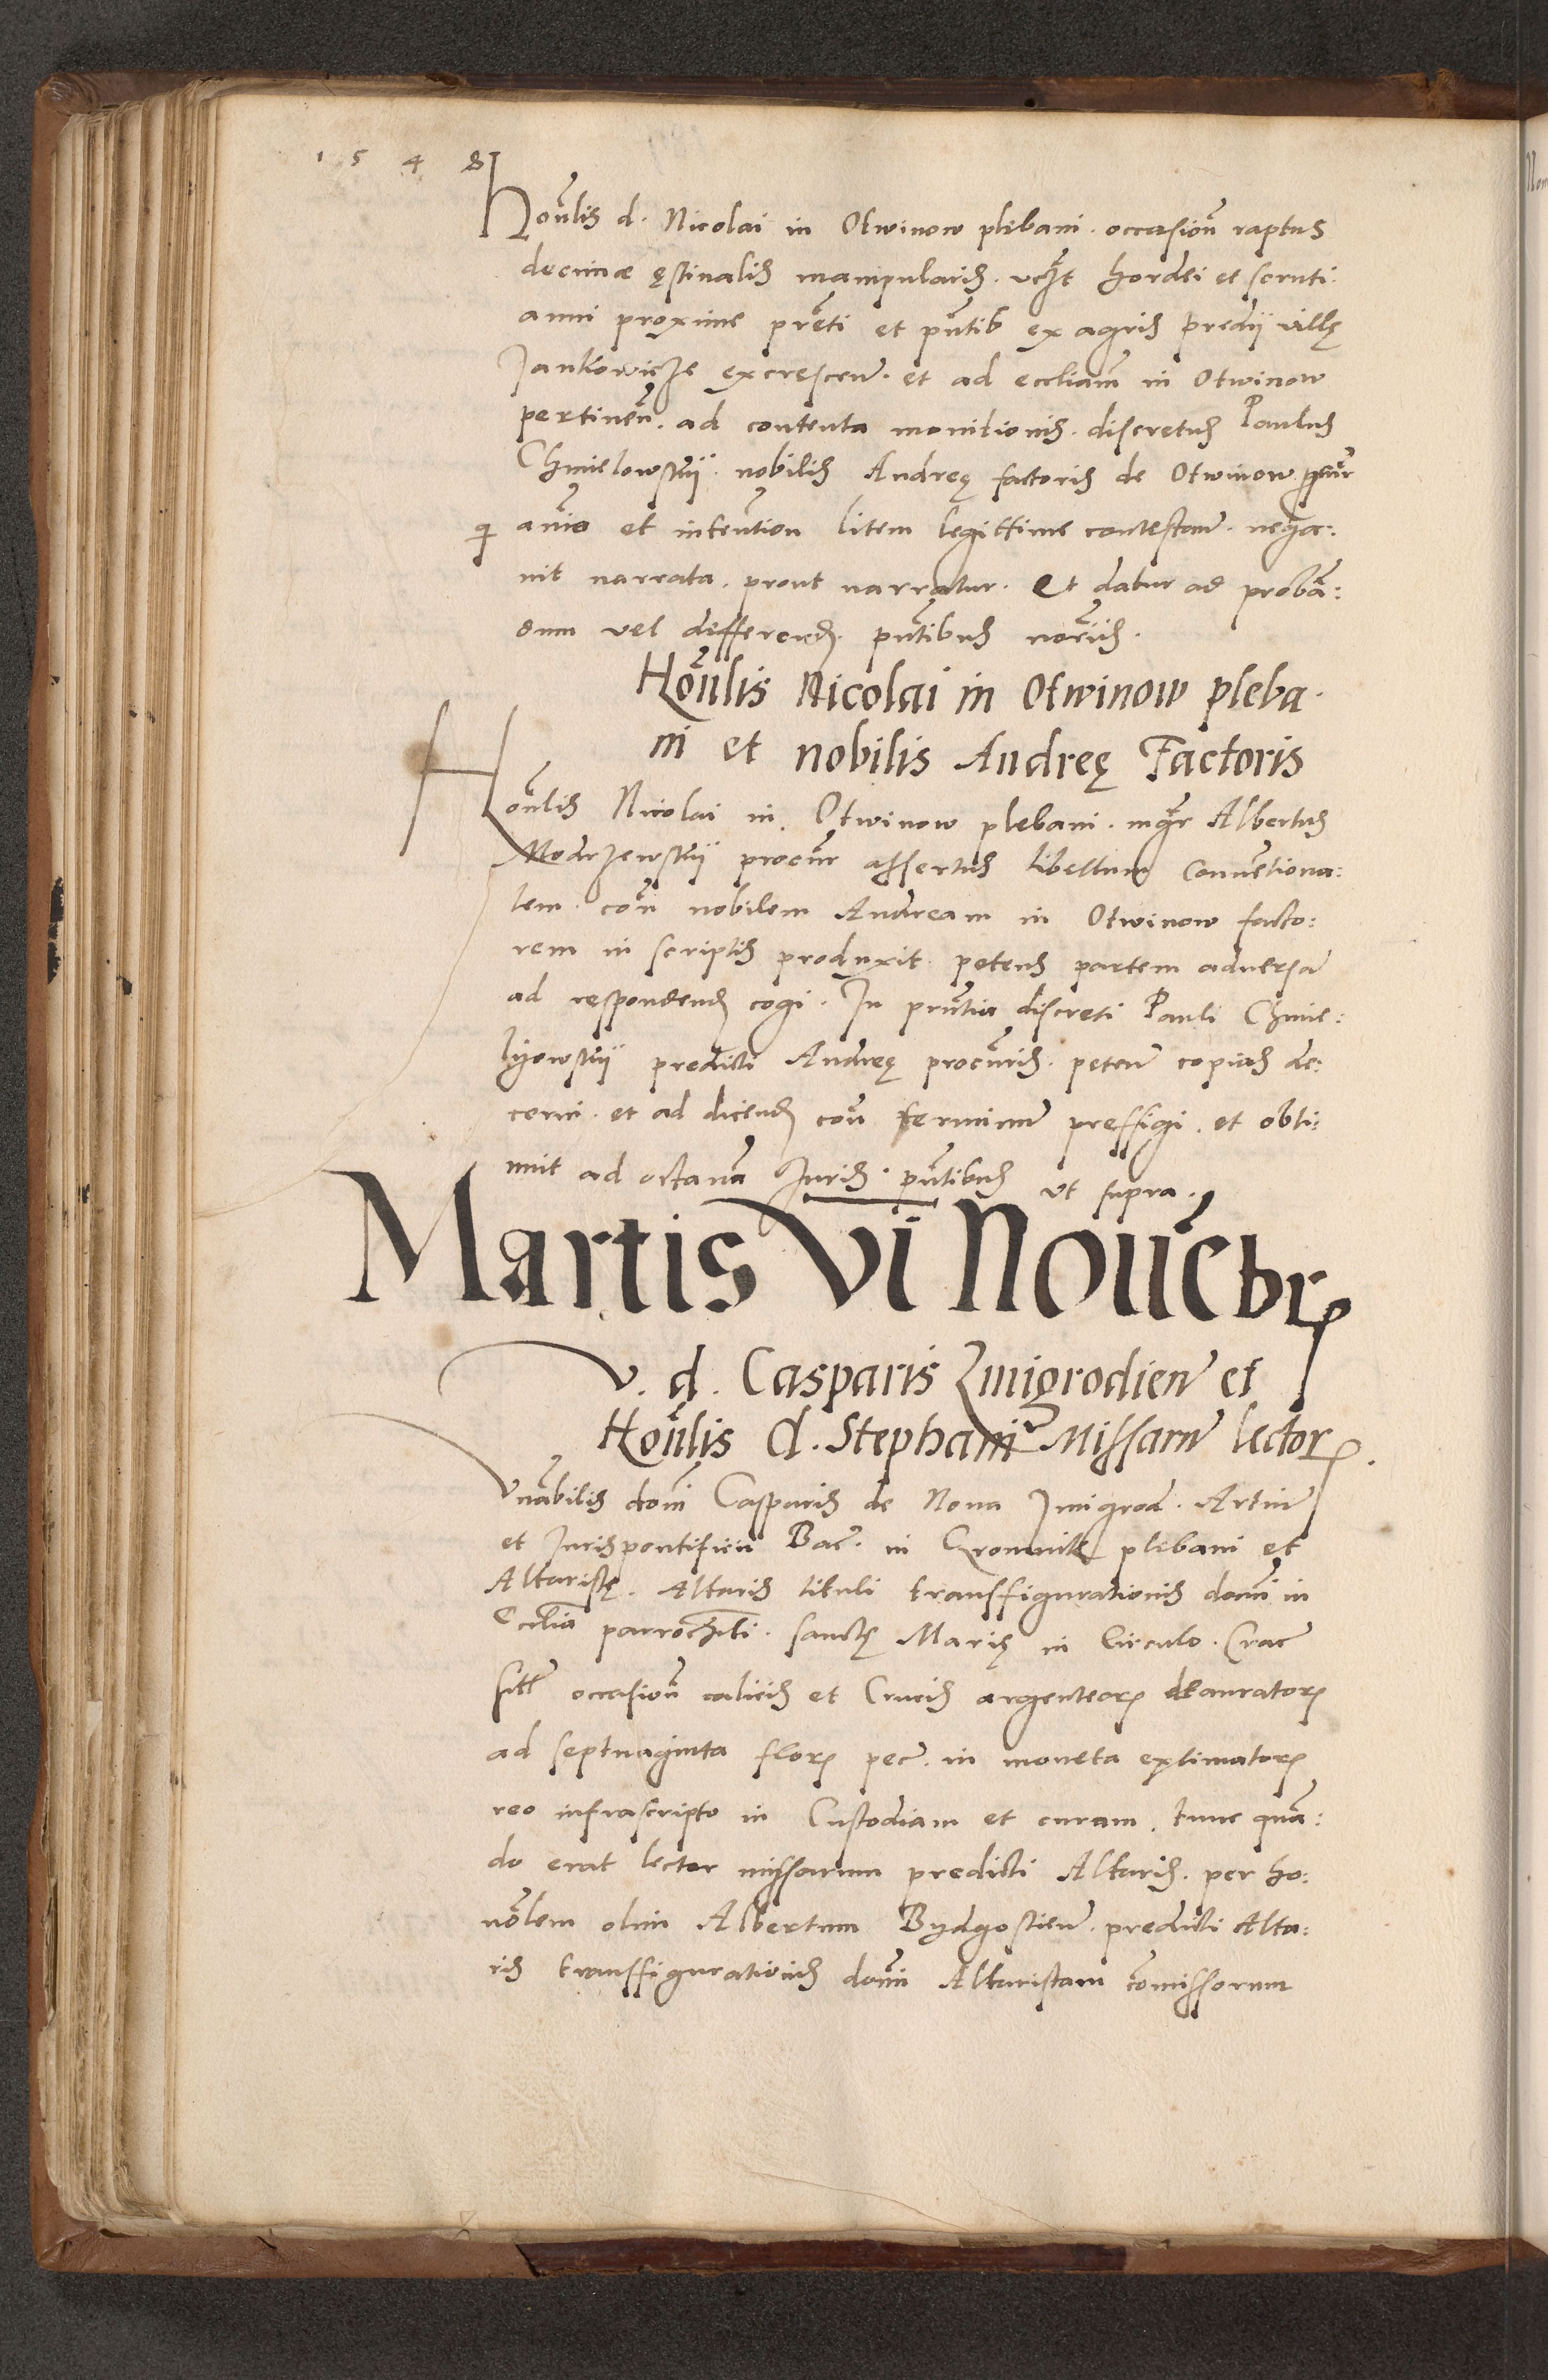 1 5 4 8
Hōnlis d. Nicolai in Otwinow plebani. occasioñ raptus
decimæ ęstiualis manipularis. vczt hordei et
anni proxime pręti et pñtib ex agris predij villę
Jankowicze excrescen. et ad eccliam in Otwinow
pertineñ. ad contenta monitionis. discretus Paulus
Chmielowskij. nobilis Andreę factoris de Otwinow procur
qi animo et intention litem legittime contestam. nega:
uit narrata. prout narratur. Et datur ad probā:
dum vel defferend. pñtibus nor̃iis.
Hoñlis Nicolai in Otwinow pleba.
ni et nobilis Andreę Factoris
Hoñlis Nicolai in Otwinow plebani. mgr Albertus
Modrzewskij procur assertus libellum conuentiona:
lem. coñ nobilem Andream in Otwinow facto:
rem in scriptis produxit. petens partem aduersā
ad respondend cogi. In pñtia discreti Pauli Chmie:
lyowskij predicti Andreę procuris. peten copias de:
cerni. et ad dicend coñ terminum preffigi. et obti:
nuit ad octauā Juris. pñtibus vt supra.
Martis VI Nouēbr
V. d. Casparis Zmigrodien et
Hoñlis d. Stephani Missarum lector.
Vnābilis domi Casparis de Noua Zmigrod. Artium
et Jurispontificii Bac. in Gromnik plebani et
Altaristę. Altaris tituli transffigurationis domi in
Ecclia parrochili. sanctę Marię in Circulo. Crac
sitt occasioñ calicis et Crucis argenteor deaurator
ad septuaginta flor pec. in moneta extimator
reo infrascripto in Custodiam et curam. tunc quā:
do erat lector missarum predicti Altaris. per ho:
nōlem olim Albertum Bydgostien. predicti Alta:
ris transffigurationis domi Altaristam cōmissorum